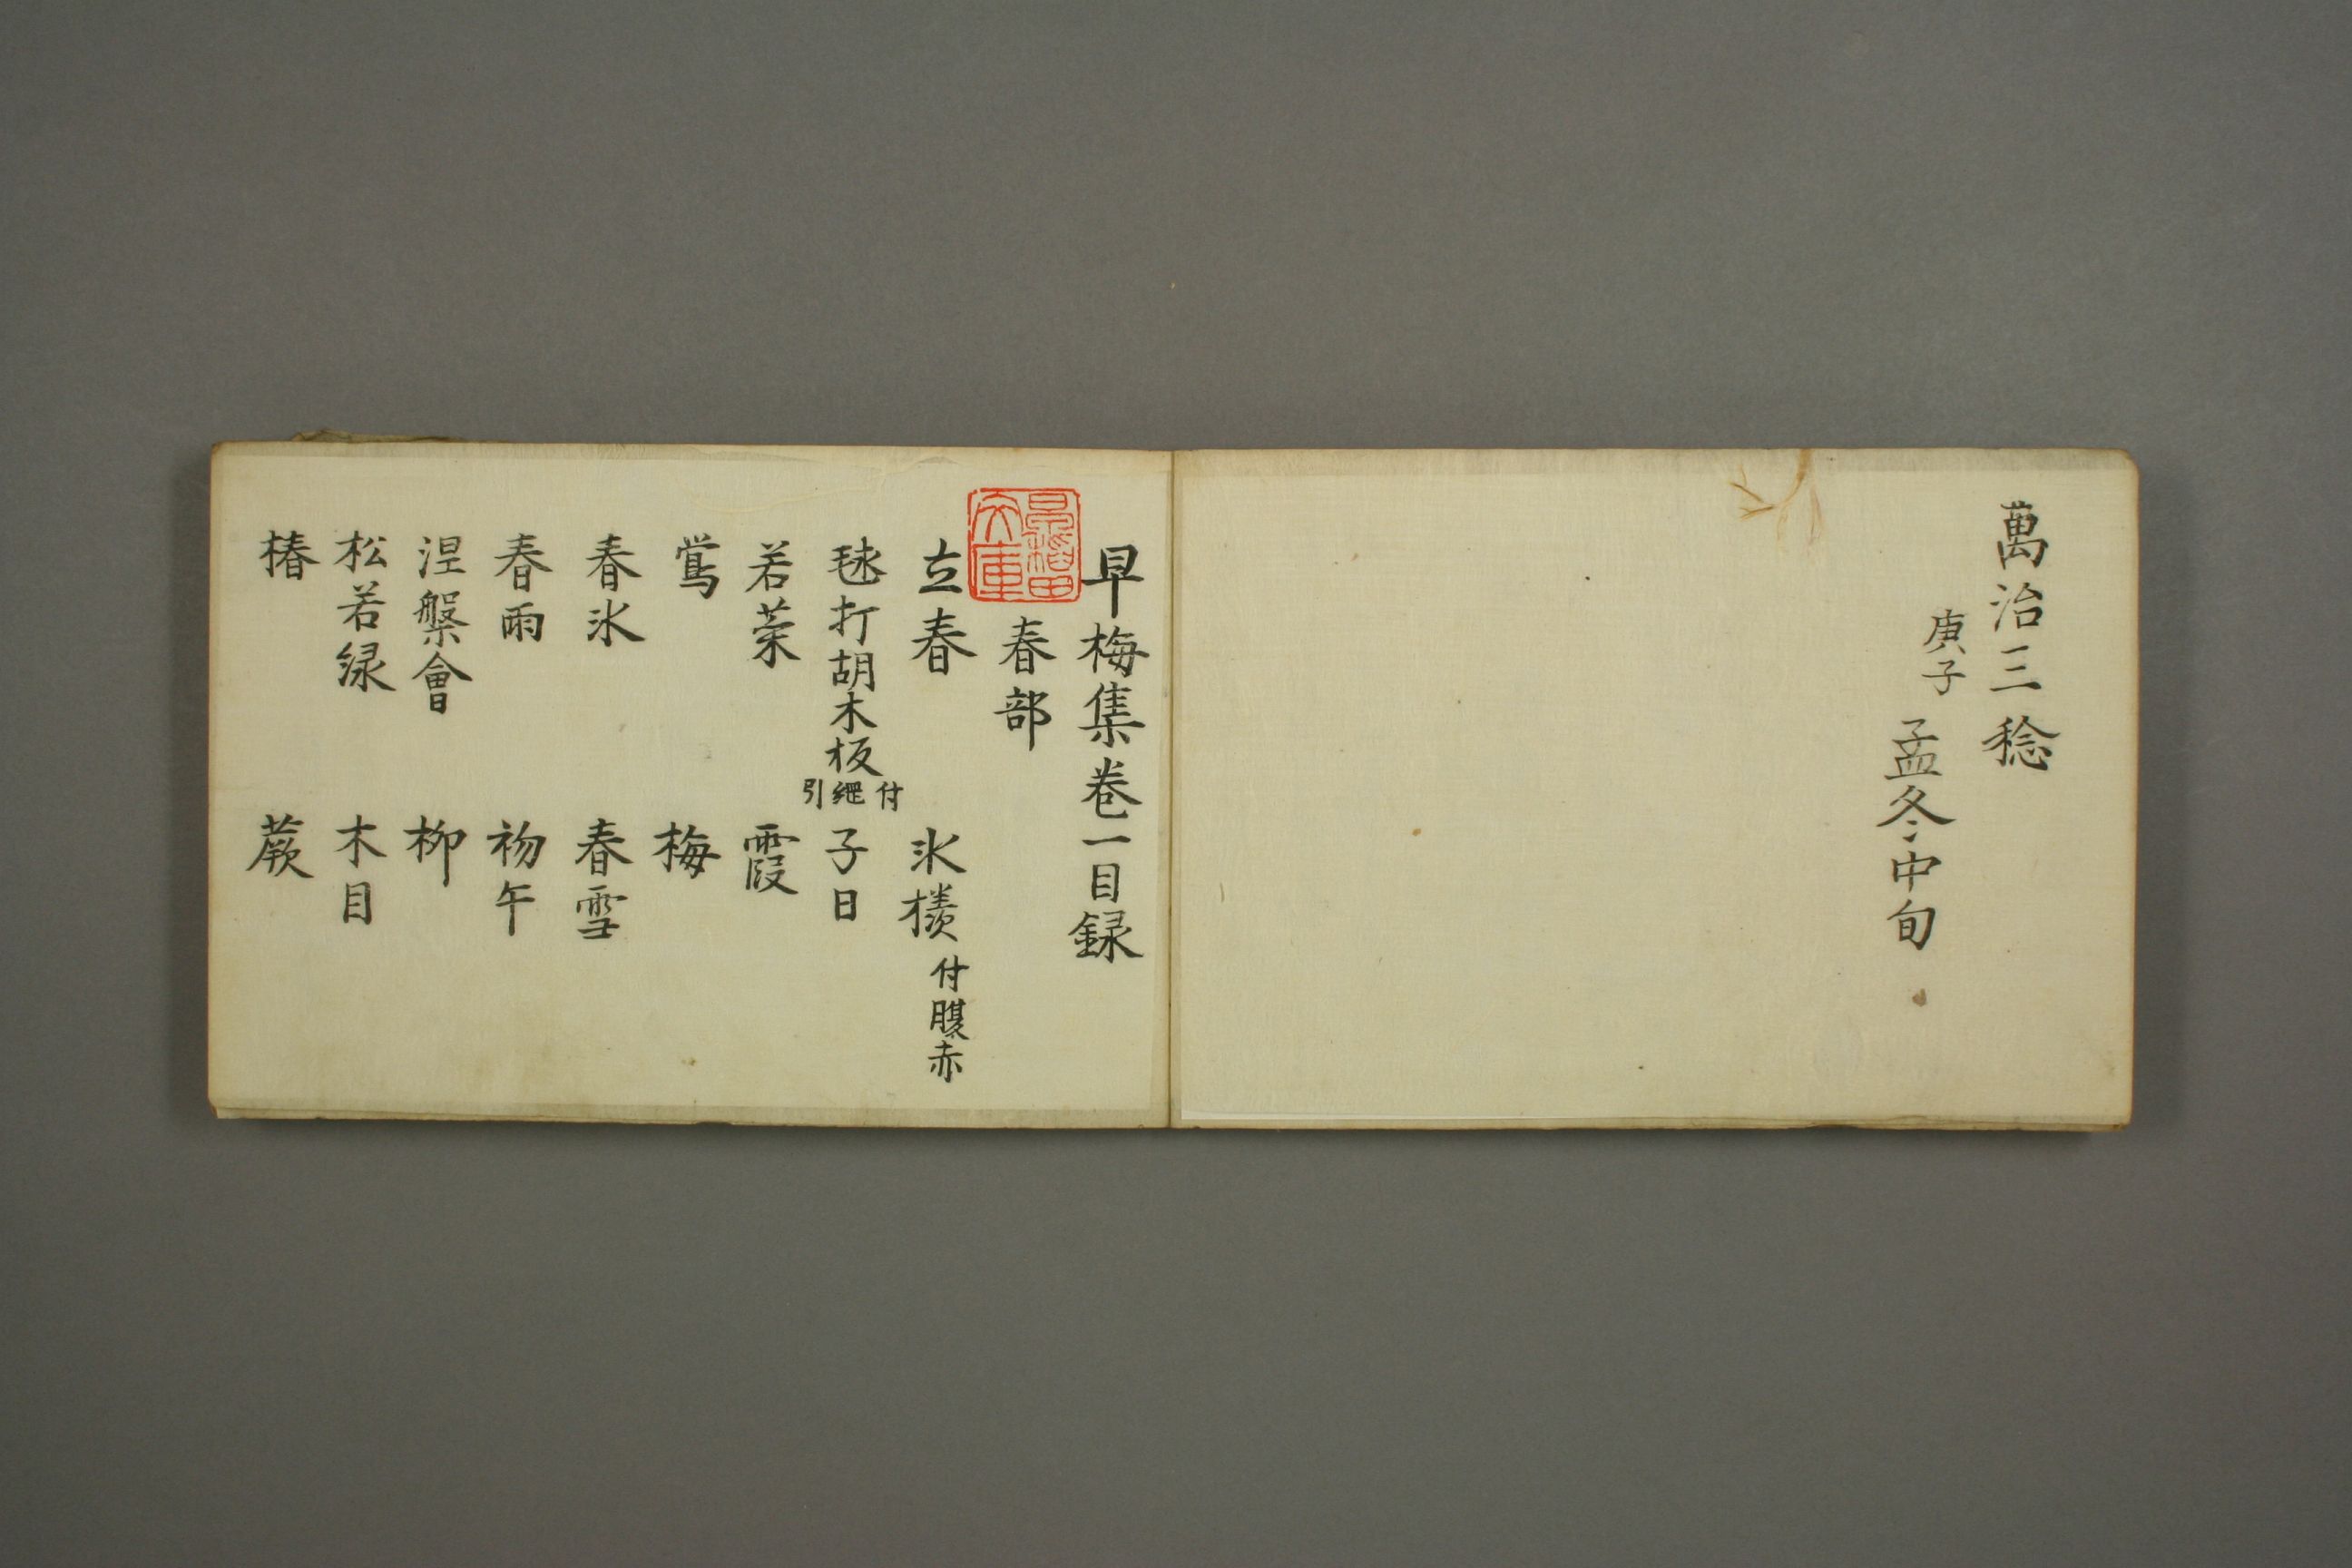 萬治三稔
庚子
孟冬中旬
早梅集巻一目録
春部
立春
氷様 付腹赤
毬打胡木板 付縄引
子日
若菜
霞
鴬
梅
春氷
春雪
春雨
初午
涅槃會
柳
松若緑
木目
椿
蕨
早稲田文庫